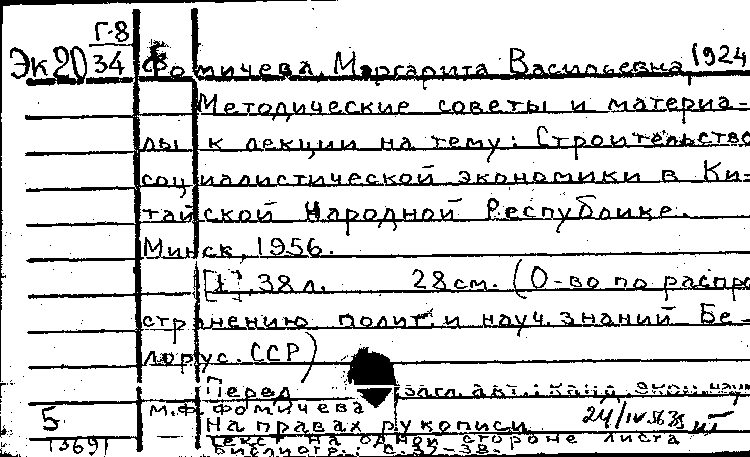 Г-8
Эк20 34 Фомичева, Маргарита Васильевна, 1924
Методические советы и материа-
лы к лекции на тему: Строительство
социалистической экономики в Ки-
тайской Народной Республике.
Минск, 1956.
[1], 38 л. 28 см. (О-во по распро
странению полит. и науч. знаний Бе-
лорус. ССР)
Перед загл. авт.: канд. экон. наук
М.Ф. Фомичева
5 На правах рукописи 24/IV.56
Текст на одной стороне листа
Библиогр.: с. 37-38.